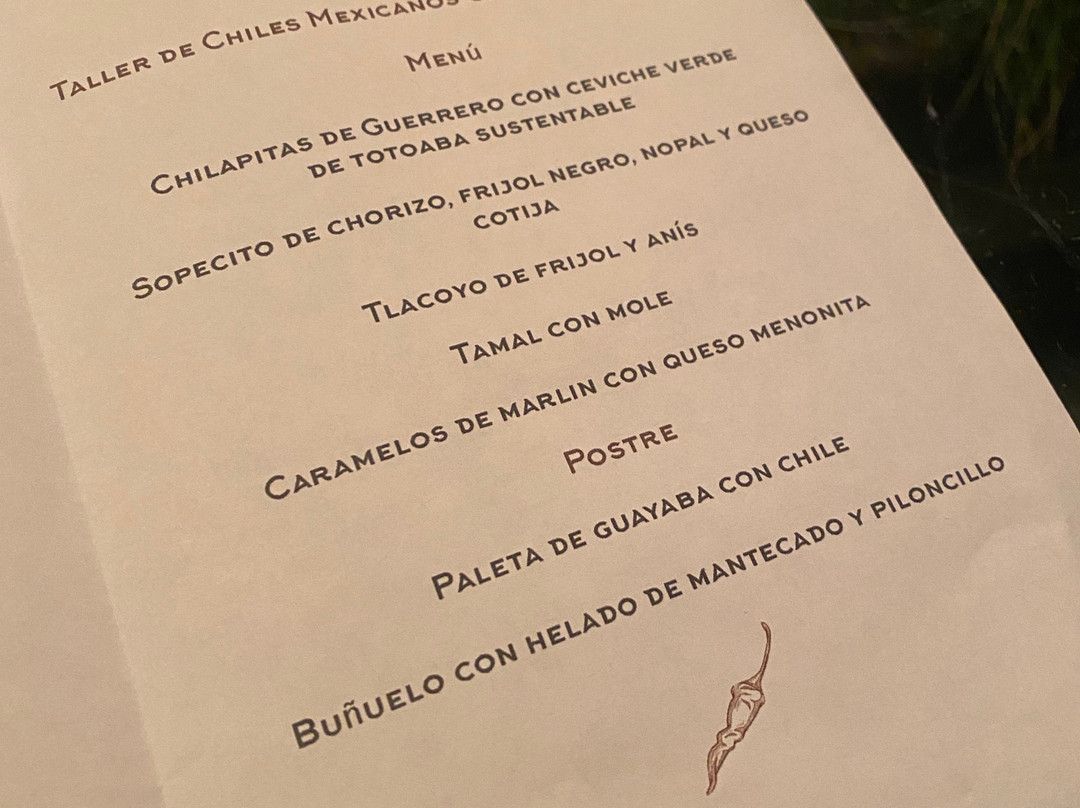 Taller de Chiles Mexicanos
Menú
Chilapitas de Guerrero con ceviche verde
de totoaba sustentable
Sopecito de chorizo, frijol negro, nopal y queso
cotija
Tlacoyo de frijol y anís
Tamal con mole
Caramelos de marlin con queso menonita
Postre
Paleta de guayaba con chile
Buñuelo con helado de mantecado y piloncillo